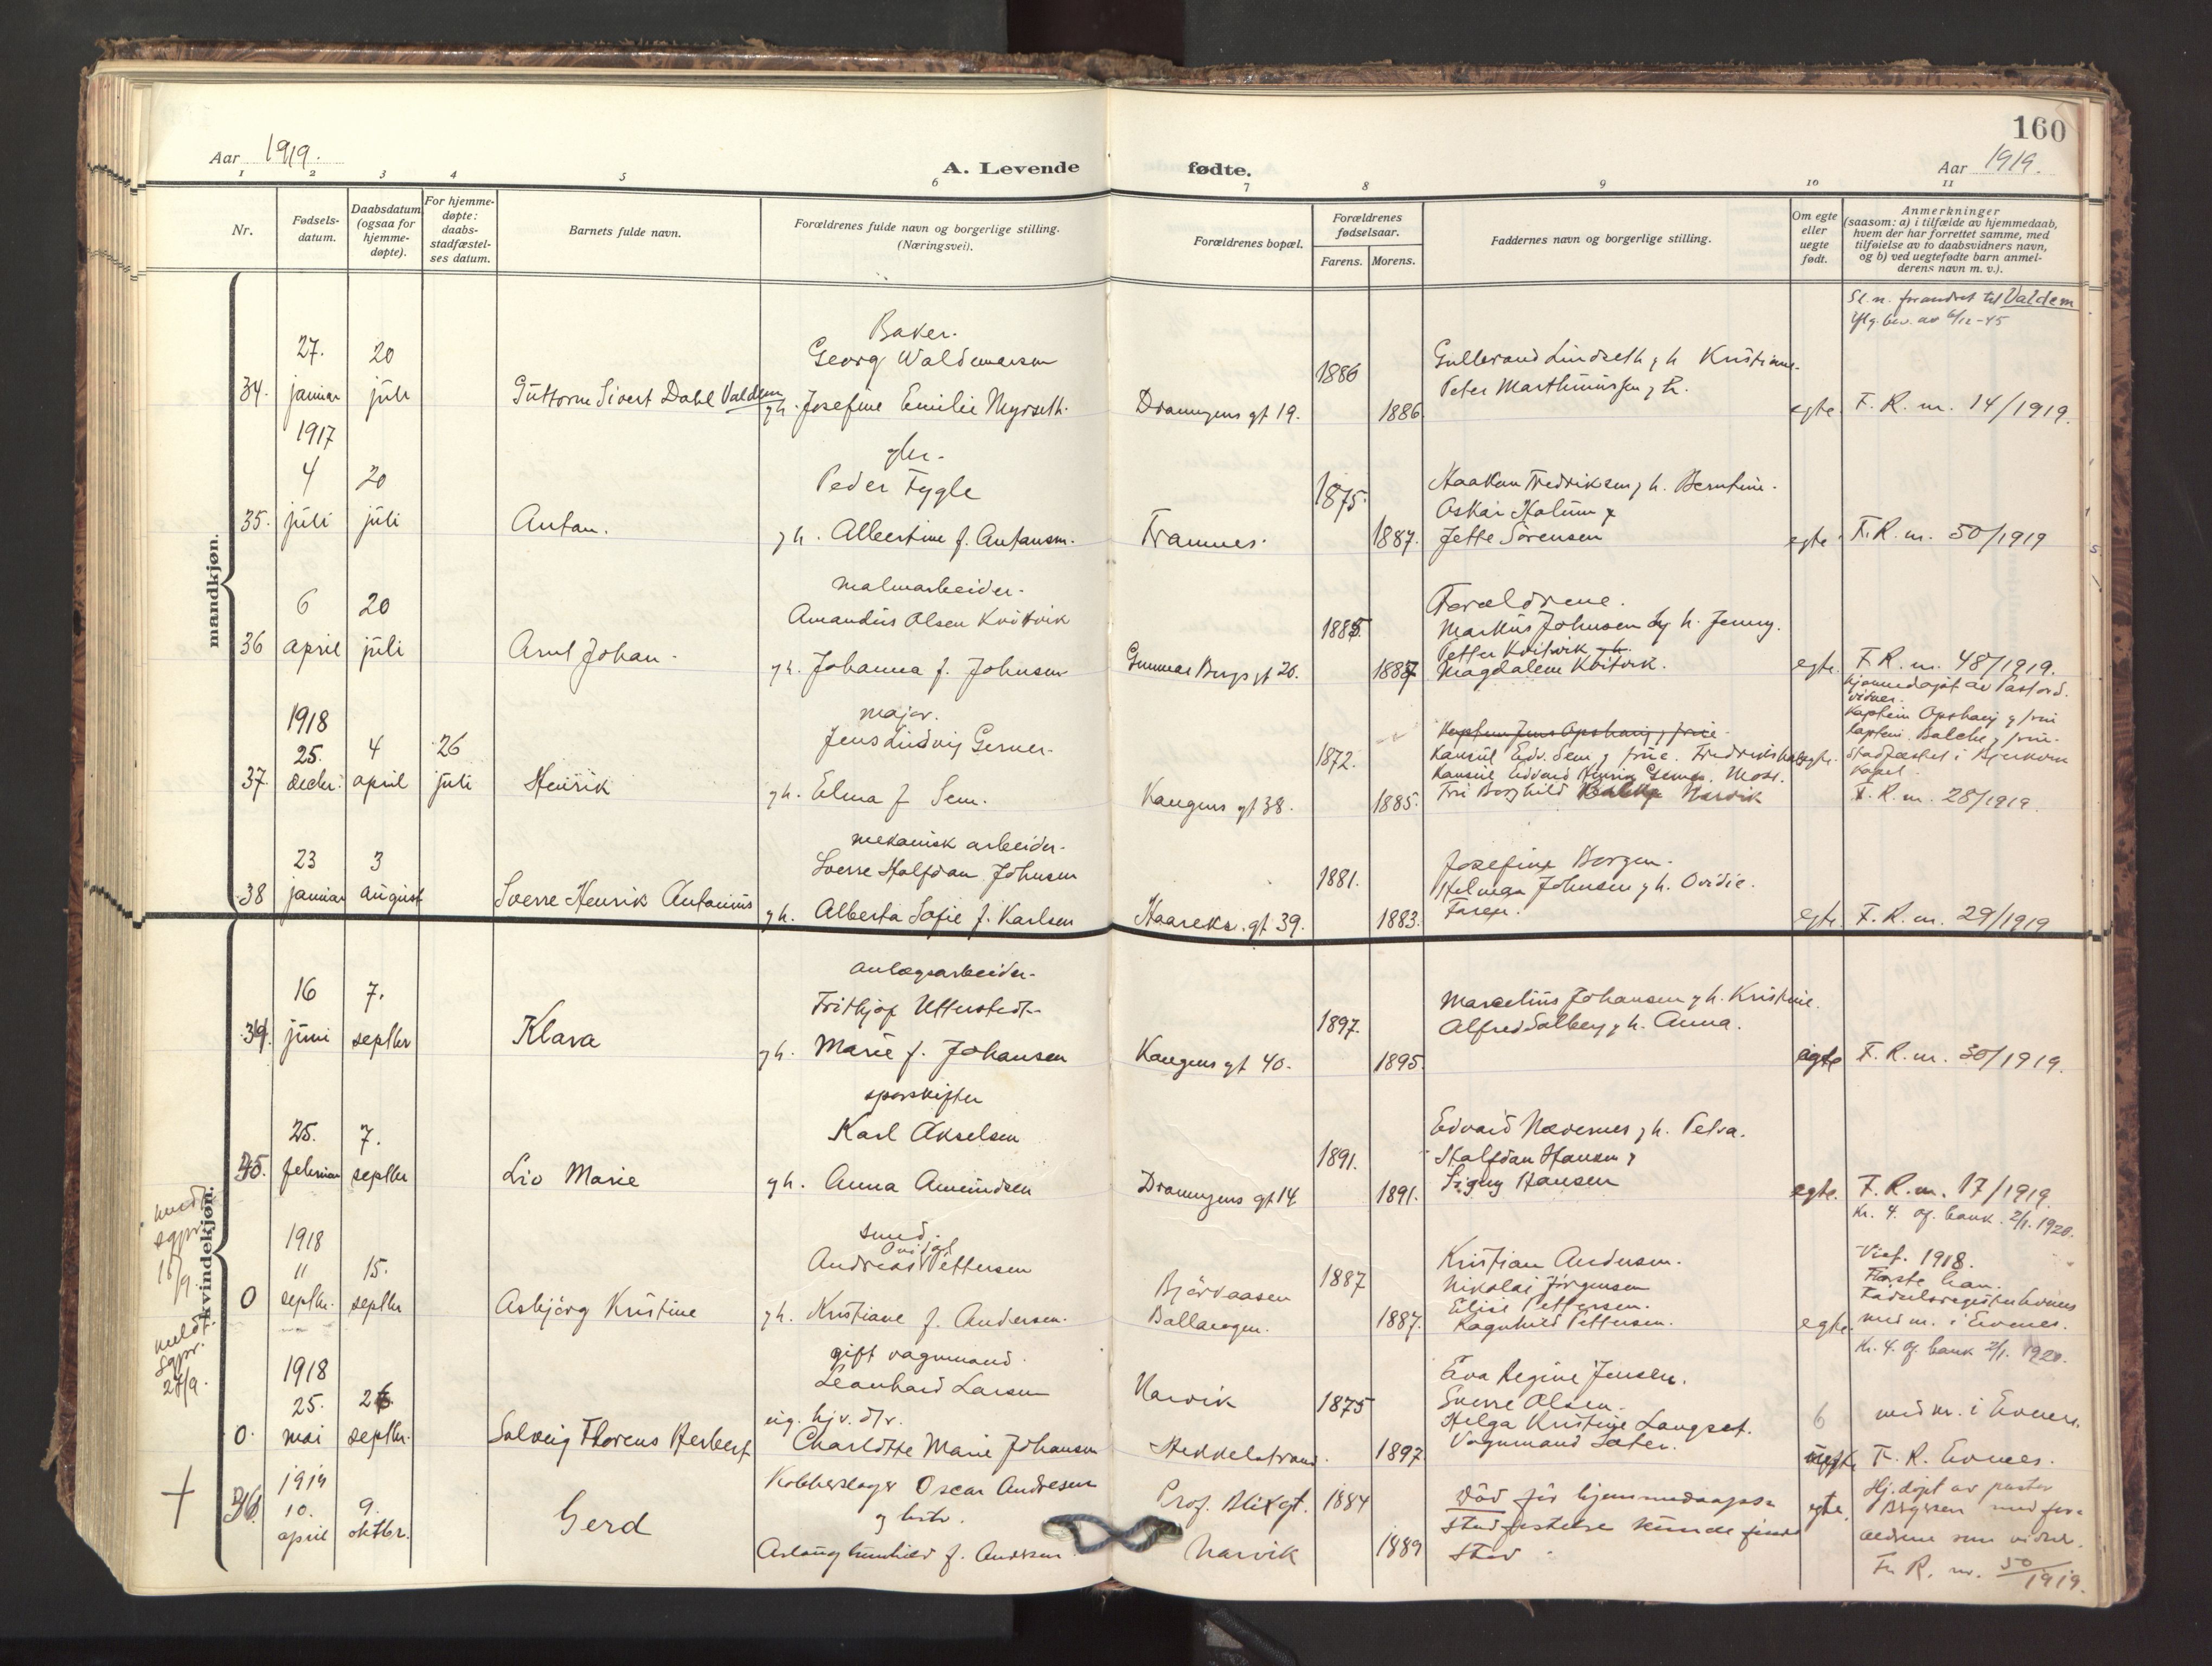 160
Aar 1919.
A. Levende fødte.
Aar 1919.
1 2 3 4 5 6 7 8 9 10 11
Nr.
Fødsels-
datum.
Daabsdatum
(ogsaa for
hjemme-
døpte).
For hjemme-
døpte:
daabs-
stadfæstel-
ses datum.
Barnets fulde navn.
Forældrenes fulde navn og borgerlige stilling.
(Næringsvei).
Forældrenes bopæl.
Forældrenes
fødselsaar.
Farens. Morens.
Faddernes navn og borgerlige stilling.
Om egte
eller
uegte
født.
Anmerkninger
(saasom: a) i tilfælde av hjemmedaab,
hvem der har forrettet samme, med
tilføielse av to daabsvidners navn,
og b) ved uegtefødte barn anmel-
derens navn m. v.).
mandkjøn.
Sl.n. forandret til Valdem
iflg. bev. av 6/12-45
34.
27.
januar
20
juli
Guttorm Sivert Dahl Valdem
Baker.
Georg Waldemarsen
g h. Josefine Emilie Myrseth.
Dronningens gt 19.
1886
1886
Gulbrand Lindseth g h Kristiane.
Peter Marthinussen g h.
egte.
F. R. nr. 14/1919.
35.
1917
4
juli
20
juli
Anton.
Peder Fygle
g h. Albertine f. Antonsen.
Framnes.
1875.
1887.
Haakon Fredriksen g h. Berntine.
Oskar Holum g
Jette Sørensen
egte
F. R. nr. 50/1919
36
6
april
20
juli
Arnt Johan
malmarbeider.
Amandus Olsen Kvitvik
g h. Johanna f. Johnsen
Gunnar Bergs gt 20.
1885
1887
Forældrene.
Markus Johnsen g h. Jenny.
Petter Kvitvik g h.
Magdalena Kvitvik.
egte.
F. R. nr. 48/1919.
37.
1918
25.
decbr.
4
april
26
juli
Henrik
major.
Jens Ludvig Gerner.
g h. Elma f Sem.
Kongens gt 38.
1872.
1885.
Kaptein Jens Opshaug g frue.
Konsul Edv. Sem g frue. Fredrikshald
Konsul Edvard Henrik Gerner. Moss.
Fru Borghild Balche Narvik
egte.
hjemmedøpt av Pastor
vidner.
Kaptein Opshaug g frue
Kaptein Balche g frue.
Stadfæstet i Bjerkvik
kapel.
F. R. nr. 28/1919.
38
23
januar
3
august
Sverre Henrik Antonius
mekanisk arbeider.
Sverre Halfdan Johnsen
g h. Alberta Sofie f. Karlsen
Haareks gt 39.
1881.
1883.
Josefine Borgen.
Hilmar Johnsen g h. Ovidie.
Faren.
egte.
F. R. nr. 29/1919
kvindekjøn.
34.
16
juni
7.
septbr
Klara
anlægsarbeider.
Frithjof Utterstedt
g h. Marie f. Johansen
Kongens gt 40.
1897.
1895.
Marcelius Johansen g h. Kristine.
Alfred Solberg g h. Anna.
egte
F. R. nr. 30/1919.
35.
25.
februar
7.
septbr
Liv Marie
sporskifter
Karl Akselsen
g h. Anna Amundsen
Dronningens gt 14
1891.
1891.
Edvard Nævernes g h. Petra.
Halfdan Hansen g
Signy Hansen
egte.
F. R. nr. 17/1919
Kr. 4. og bank 2/1. 1920.
0
1918
11
septbr.
15.
septbr
Asbjørg Kristine
smed.
Andreas Pettersen
g h. Kristiane f. Andersen.
Bjørkaasen
Ballangen.
1887
1887.
Kristian Andersen.
Nikolai Jørgensen
Elise Pettersen.
Ragnhild Pettersen.
egte.
1918.
Første han.
Fødselsregister Evenes
med nr. i Evenes.
Kr. 4. og bank 2/1. 1920.
meldt
sgpr.
16/9.
0.
1918
25.
mai
26.
septbr.
Solveig Florens Herbert
gift vognmand
Leonhard Larsen
Charlotte Marie Johansen
Narvik
1875
1897
Eva Regine Jensen.
Sverre Olsen.
Helga Kristine Langset.
Vognmand Sæter.
6
uegte
med nr. i Evenes.
F. R. Evenes.
meldt.
sgpr.
27/9.
36.
1919
10.
april
9.
oktbr.
Gerd
Kobberslager Oscar Andresen
og hstr.
Aslaug Gunhild f. Andersen
Prof. Blixgt.
Narvik
1884
1889
Död før hjemmedaaps-
stadfestelse kunde finde
sted.
egte
Hj.døpt av pastor
med for-
ældrene som vidner.
F. R. nr. 50/1919.